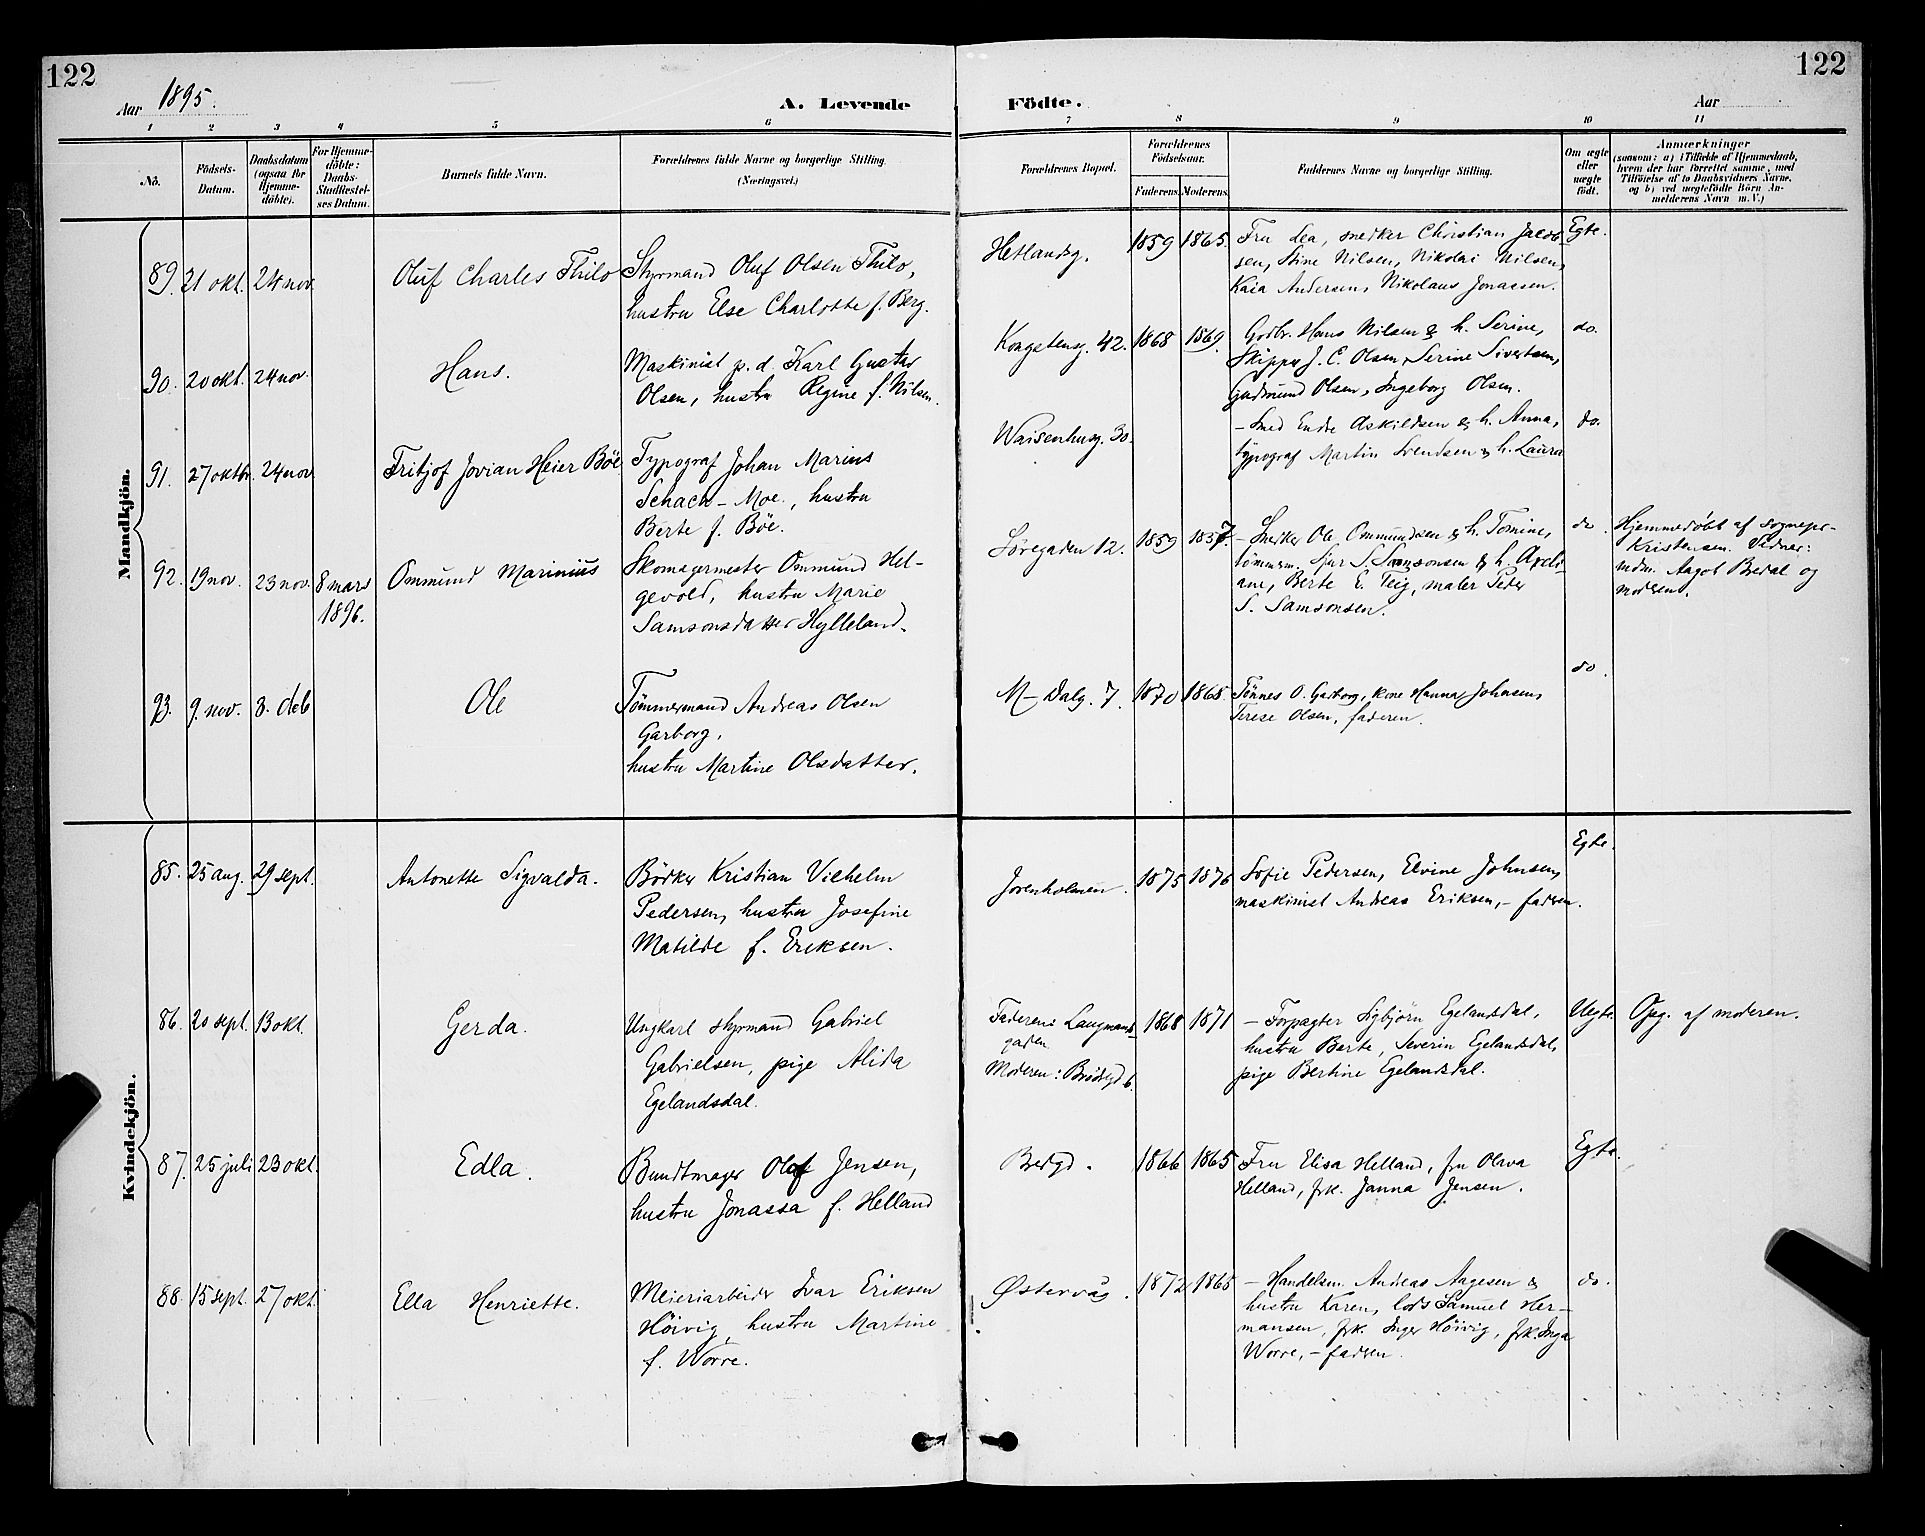 122
122
Aar 1895.
A. Levende
Födte.
Aar
1 2 3 4 5 6 7 8 9 10 11
Nö.
Födsels-
Datum.
Daabsdatum
(ogsaa for
Hjemme-
döbte).
For Hjemme-
döbte:
Daabs-
Stadfæstel-
ses Datum.
Barnets fulde Navn.
Forældrenes fulde Navne og borgerlige Stilling.
(Næringsvei.)
Forældrenes Bopæl.
Forældrenes
Födselsaar.
Faderens. Moderens.
Faddernes Navne og borgerlige Stilling.
Om ægte
eller
uægte
födt.
Anmærkninger
(saasom: a) i Tilfælde af Hjemmedaab,
hvem der har forrettet samme, med
Tilföielse af to Daabsvidners Navne,
og b) ved uægtefödte Börn An-
melderens Navn m. V.)
Mandkjön.
89. 21 okt. 24 nov. Oluf Charles Thilo
Styrmand Oluf Olsen Thilo,
hustru Else Charlotte f. Berg.
Hetlandsg. 1859 1865.
Fru Lea, snedker Christian Jacob-
sen, Stine Nilsen, Nikolai Nilsen,
Kaia Andersen, Nikolaus Jonassen.
Egte.
90. 20 okt. 24 nov. Hans.
Maskinist p.d. Karl Gustav
Olsen, hustru Regine f. Nilsen.
Kongstensg. 42. 1868 1869.
Gdbr. Hans Nilsen & h. Serine,
Skipper J. C. Olsen, Serine Sivertsen,
Gudmund Olsen, Ingeborg Olsen.
do.
91. 27 oktbr. 24 nov. Fritjof Jovian Heier Böe
Typograf Johan Marius
Schach-Moe, hustru
Berte f. Böe.
Waisenhusg. 30.
- Smed Endre Askildsen & h. Anna,
typograf Martin Svendsen & h. Laura
do.
92. 19 nov. 23 nov. 8 mars
1896.
Ommund Marinius
Skomagermester Ommund Hel-
gevold, hustru Marie
Samsonsdatter Hylleland.
Söregaden 12. 1859 1857.
- Snedker Ole Ommundsen & h. Tomine,
tömmerm. Sjur S. Samsonsen & h. Axeli-
ane, Berte E. Teig, maler Peder
S. Samsonsen.
do.
Hjemmedøbt af sognepr.
Kristensen. Vidner:
mdm. Aagot Bredal og
moderen.
93. 9. nov. 8. deb Ole
Tömmermand Andreas Olsen
Garborg,
hustru Martine Olsdatter.
M- Dalg. 7. 1870 1868.
Tönnes O. Garborg, kone Hanna Johnsen,
Terese Olsen, faderen.
do.
Kvindekjön.
85. 25 aug. 29 sept. Antonette Sigvalda.
Bödker Kristian Vilhelm
Pedersen, hustru Josefine
Matilde f. Eriksen.
Jorenholmen. 1875 1876
Sofie Pedersen, Elvine Johnsen,
maskinist Andreas Eriksen, - faderen.
Egte.
86. 20 sept. 13 okt. Gerda.
Ungkarl styrmand Gabriel
Gabrielsen, pige Alida
Egelandsdal.
Faderen: Laugmands-
gaden
Moderen: Brödregd 6.
1868 1871
- Forpagter Sigbjörn Egelandsdal,
hustru Berte, Severin Egelandsdal,
pige Bertine Egelandsdal.
Uegte. Opg. af moderen.
87. 25 juli 23 okt. Edla.
Bundtmager Olaf Jensen,
hustru Jonassa f. Helland
Bredgd. 1866 1865
Fru Elisa Helland, fru Olava
Helland, frk. Janna Jensen.
Egte.
88. 15 sept. 27 okt. Ella Henriette.
Meieriarbeider Ivar Eriksen
Höivig, hustru Martine
f. Worre.
Østervåg. 1872 1865
- Handelsm. Andreas Aagesen &
hustru Karen, lods Samuel Her-
mansen, frk. Inger Höivig, frk. Inga
Worre, - faderen.
do.